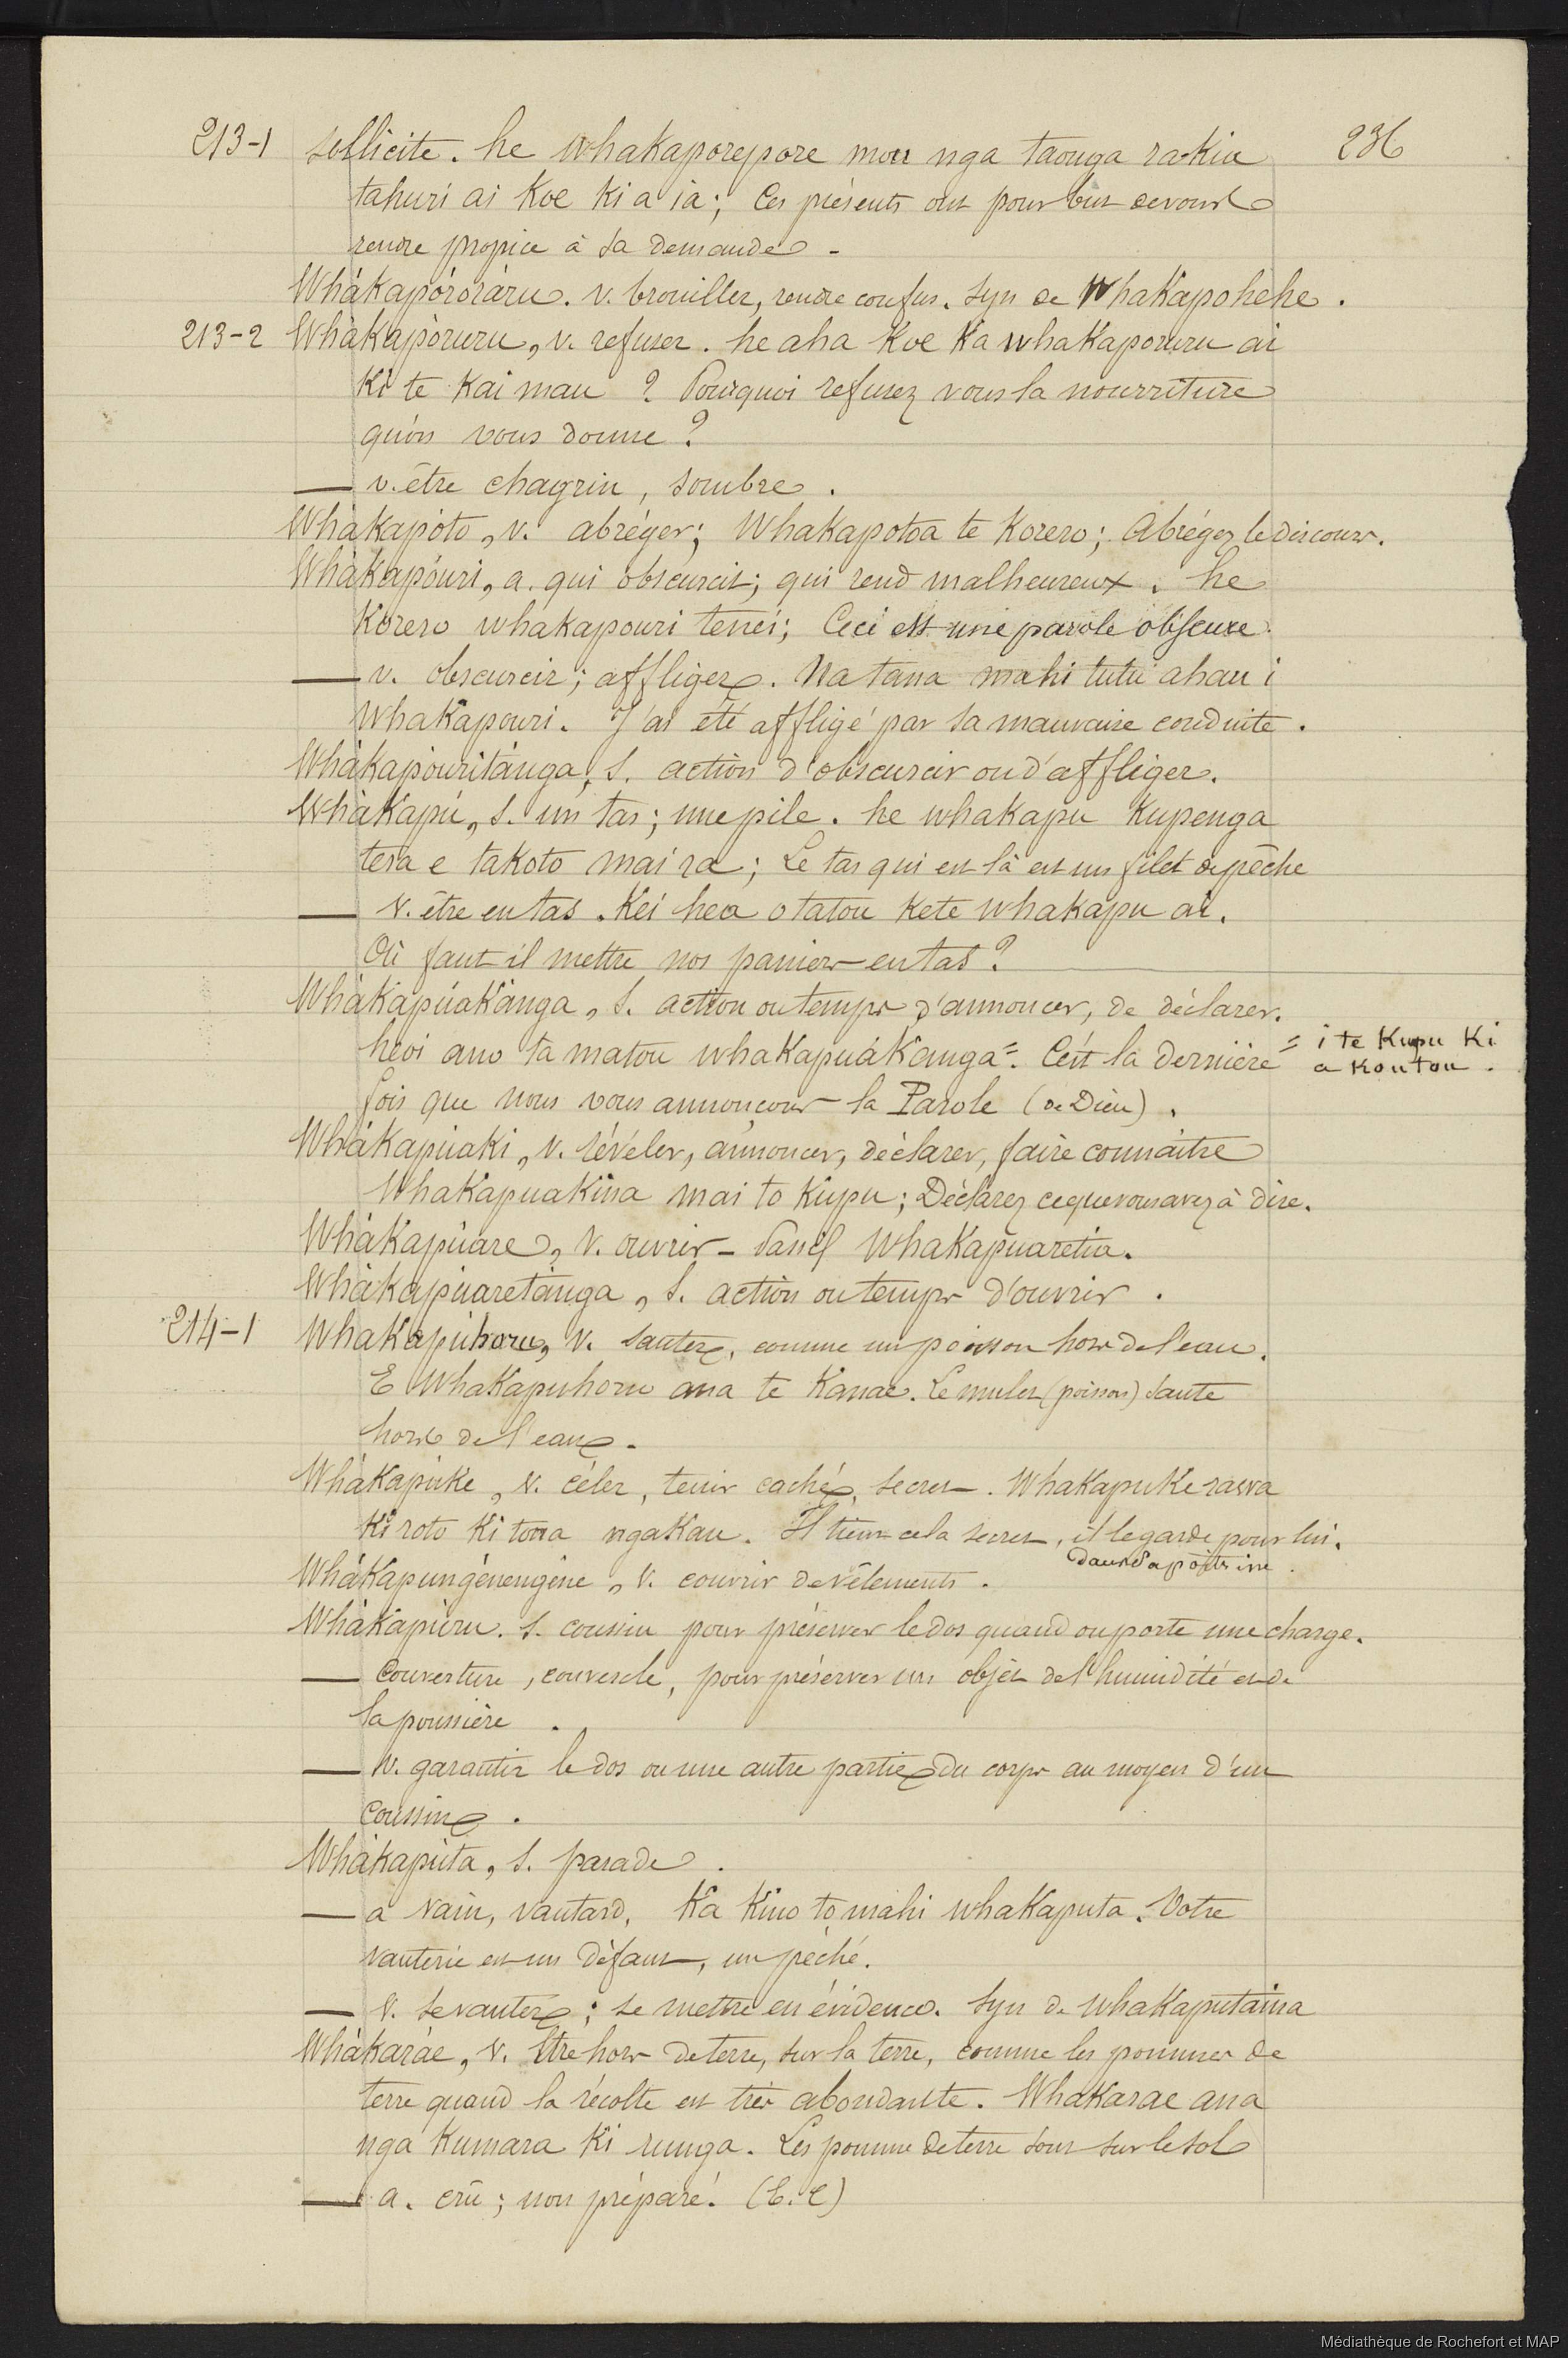 213-1 sollicite. he whakaporepore mou nga taonga ra kia 236
tahuri ai koe ki a ia; Ces présents ont pour but de vous
rendre propice à sa demande -
Whàkapóroráru. v. brouiller, rendre confus. Syn de Whakapohehe.
213-2 Whàkapòruru, v. refuser. he aha koe ka whakaporuru ai
ki te kai mau ? Pourquoi refusez vous la nourriture
qu'on vous donne ?
— v. être chagrin, sombre.
Whàkapòto, v. abréger; Whakapotoa te korero; Abrégez le discours.
Whàkapóuri, a. qui obscurcit; qui rend malheureux. he
korero whakapouri tenei; Ceci est une parole obscure.
— v. obscurcir; affliger. Na tana mahi tutu ahau i
whakapouri. J'ai été affligé par sa mauvaise conduite.
Whàkapòuritánga, s. action d'obscurcir ou d'affliger.
Whàkapú, s. un tas; une pile. he whakapu kupenga
tera e takoto mai ra; Le tas qui est là est un filet de pêche
— v. être en tas. Kei hea o tatou kete whakapu ai.
Où faut il mettre nos paniers en tas ?
Whàkapúakánga, s. action ou temps d'annoncer, de déclarer.
heoi ano ta matou whakapuákanga =. C'est la dernière = i te kupu ki
a koutou.
fois que nous vous annonçons la Parole (de Dieu).
Whàkapúaki, v. révéler, annoncer, déclarer, faire connaitre
Whakapuakina mai to kupu; Déclarez ce que vous avez à dire.
Whàkapúare, v. ouvrir - Passif Whakapuaretia.
Whàkapúaretánga, s. action ou temps d'ouvrir.
214-1 Whakapúhoru, v. sauter, comme un poisson hors de l'eau.
E whakapuhoru ana te kanae. Le mulet (poisson) saute
hors de l'eau.
Whàkapúke, v. céler, tenir caché, secret. Whakapuke rawa
ki roto ki tona ngakau. Il tient cela secret, il le garde pour lui.
dans sa poitrine.
Whàkapungénengéne, v. couvrir de vêtements.
Whàkapúru. s. coussin pour préserver le dos quand on porte une charge.
— Couverture, couvercle, pour préserver un objet de l'humidité et de
la poussière.
— v. garantir le dos ou une autre partie du corps au moyen d'un
coussin.
Whàkapúta, s. parade.
— a vain, vantard, Ka kino to mahi whakaputa. Votre
vanterie est un défaut, un péché.
— v. se vanter; se mettre en évidence. Syn de whakaputaina
Whàkaráe, v. être hors de terre, sur la terre, comme les pommes de
terre quand la récolte est très abondante. Whakarae ana
nga kumara ki runga. Les pomme de terre sont sur le sol
— a. crû; non préparé. (C. C)
Médiathèque de Rochefort et MAP